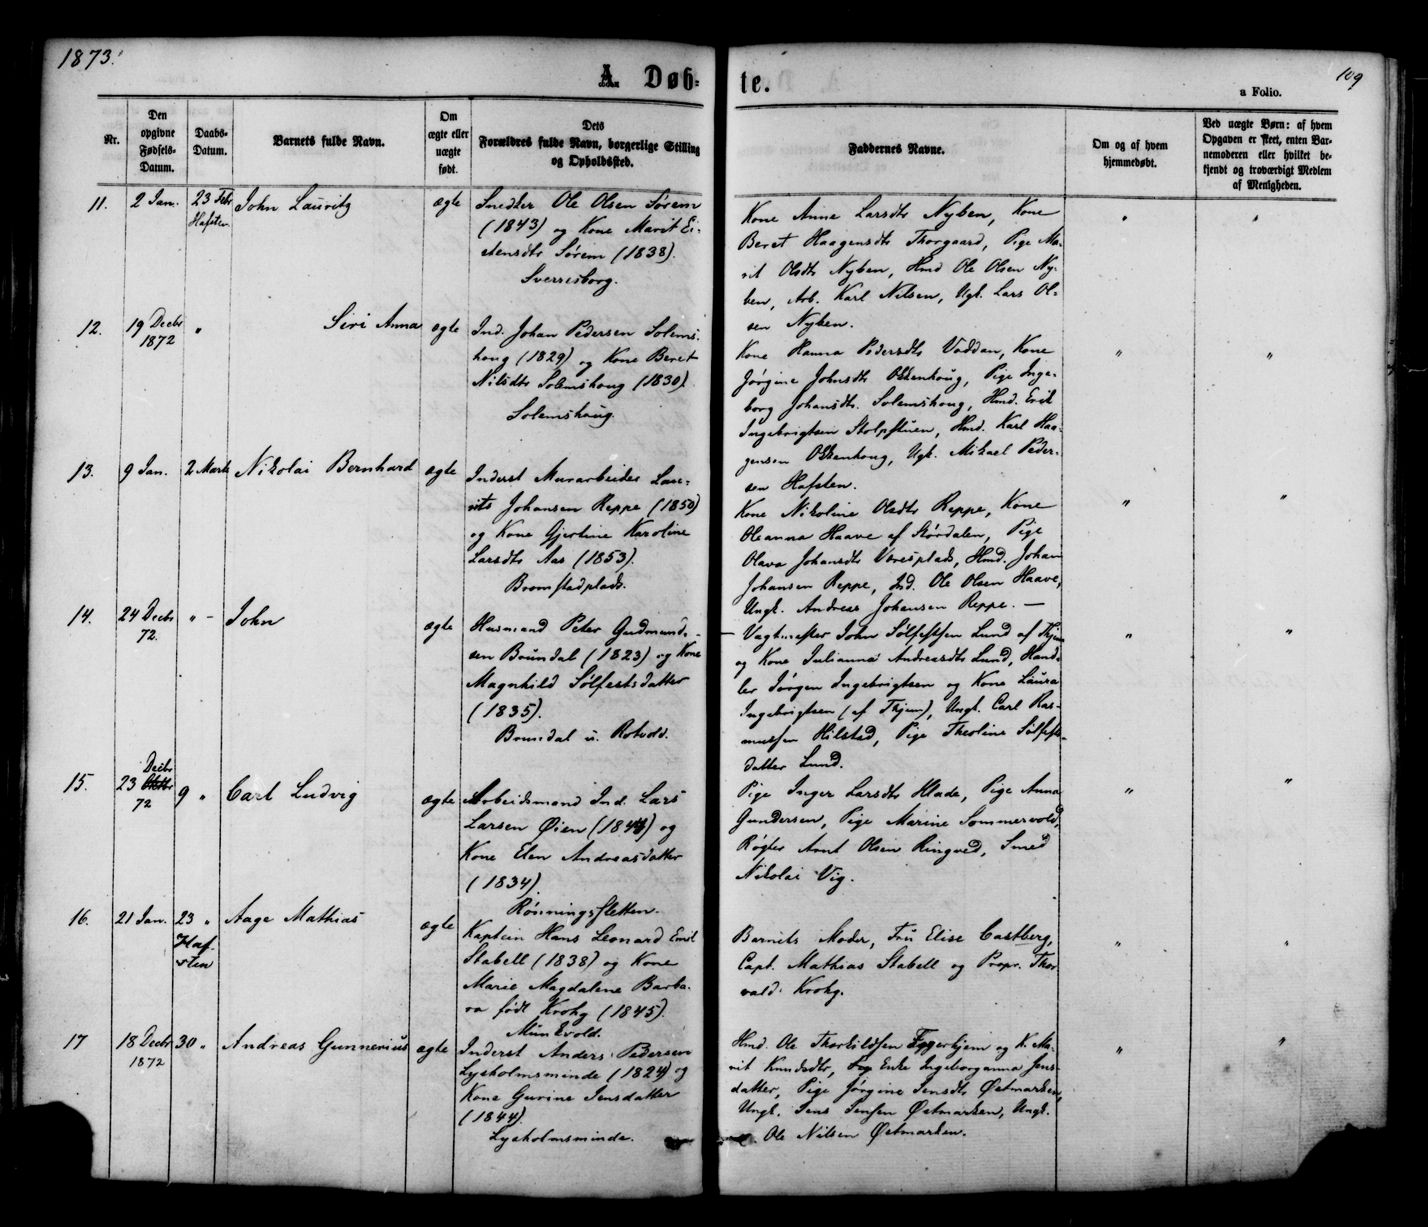 1873.
109
A. Døb-
te.
a Folio.
Nr.
Den opgivne Fødsels-Datum.
Daabs-Datum.
Barnets fulde Navn.
Om ægte eller uægte født.
Dets Forældres fulde Navn, borgerlige Stilling og Opholdssted.
Faddernes Navne.
Om og af hvem hjemmedøbt.
Ved uægte Børn: af hvem Opgaven er skeet, enten Barnemoderen eller hvilket bekjendt og troværdigt Medlem af Menigheden.
11.
2 Jan.
23 Febr
Hafsten
John Lauritz
ægte
Snedker Ole Olsen Sørem
(1843) og Kone Marit Ei-
stensdtr Sørem (1838).
Sverresborg.
Kone Anna Larsdtr Nyben, Kone
Beret Haagensdtr Thorgaard, Pige Ma-
rit Olsdtr Nyben, Hmd Ole Olsen Ny-
ben, Arb. Karl Nilsen, Ugk. Lars Ol-
sen Nyben.
" "
12.
19 Decbr
1872
"
Siri Anna
ægte
Ind. Johan Pedersen Solems-
houg (1829) og Kone Beret
Nilsdtr Solemshoug (1830).
Solemshaug.
Kone Hanna Pedersdtr Vaddan, Kone
Jørgine Johnsdtr Okkenhoug, Pige Inge-
borg Johansdtr. Solemshoug, Hmd. Erik
Ingebrigtsen Stolpstuen, Hmd. Karl Haa-
gensen Okkenhoug, Ugk. Mikael Peder-
sen Hafsten.
" "
13.
9 Jan.
2 Marts
Nikolai Bernhard
ægte
Inderst Murarbeider Lau-
rits Johansen Reppe (1850)
og Kone Gjertine Karoline
Larsdtr Aas (1853).
Bromstadplads.
Kone Nikoline Olsdtr Reppe, Kone
Oleanna Haave af Størdalen, Pige
Olava Johansdtr Væresplads, Hmd. Johan
Johansen Reppe, Ind. Ole Olsen Haave,
Ungk. Andreas Johansen Reppe. —
" "
14.
24 Decbr
72.
" -
John
ægte
Husmand Peter Gudmund-
sen Brundal (1823) og Kone
Magnhild Sølfestsdatter
(1835).
Brundal u. Rotvold.
— Vagtmester John Sølfestsen Lund af Thjem
og Kone Julianna Andreasdtr Lund, Hand-
ler Jørgen Ingebrigtsen og Kone Laura
Ingebrigtsen (af Thjem), Ungk. Carl Ras-
mussen Hilstad, Pige Theoline Sølfest-
datter Lund.
" "
15.
23 Decbr
72
9 "
Carl Ludvig
ægte
Arbeidsmand Ind. Lars
Larsen Øien (1844) og
Kone Elen Andreasdatter
(1834).
Rønningssletten.
Pige Inger Larsdtr Hlade, Pige Anna
Gundersen, Pige Marine Sommervold,
Røgter Arnt Olsen Ringved, Smed
Nikolai Vig.
" "
16.
21 Jan.
23 "
Haf-
sten
Aage Mathias
ægte
Kaptein Hans Leonard Emil
Stabell (1838) og Kone
Marie Magdalene Barba-
ra født Krohg (1845).
Munkvold.
Barnets Moder, Fru Elise Castberg,
Capt. Mathias Stabell og Propr. Thor-
vald Krohg.
" "
17
18 Decbr
1872
30 "
Andreas Gunnerius
ægte
Inderst Anders Pedersen
Lysholmsminde (1824) og
Kone Gurine Jensdatter
(1844).
Lysholmsminde.
Hmd. Ole Thorkildsen Fagerhjem og K. Ma-
rit Knudsdtr, Enke Ingeborganna Jens-
datter, Pige Jørgine Jensdtr Østmarken,
Ungk. Jens Jensen Østmarken, Ungk.
Ole Nilsen Østmarken.
" "